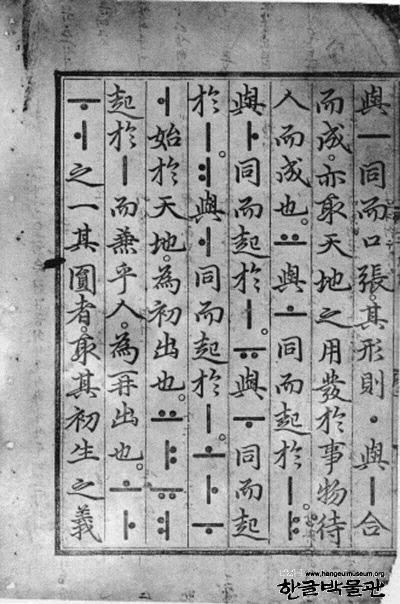 與ㅡ同而口張。其形則ㆍ與ㅣ合
而成。亦取天地之用發於事物待
人而成也。ㅛ與ㅗ同而起於ㅣ。ㅑ
與ㅏ同而起於ㅣ。ㅠ與ㅜ同而起
於ㅣ。ㅕ與ㅓ同而起於ㅣ。ㅗㅏㅜ
ㅓ始於天地。為初出也。ㅛㅑㅠㅕ
起於ㅣ而兼乎人。為再出也。ㅗㅏ
ㅜㅓ之一其圓者。取其初生之義
www.hangeulmuseum.org
한글박물관